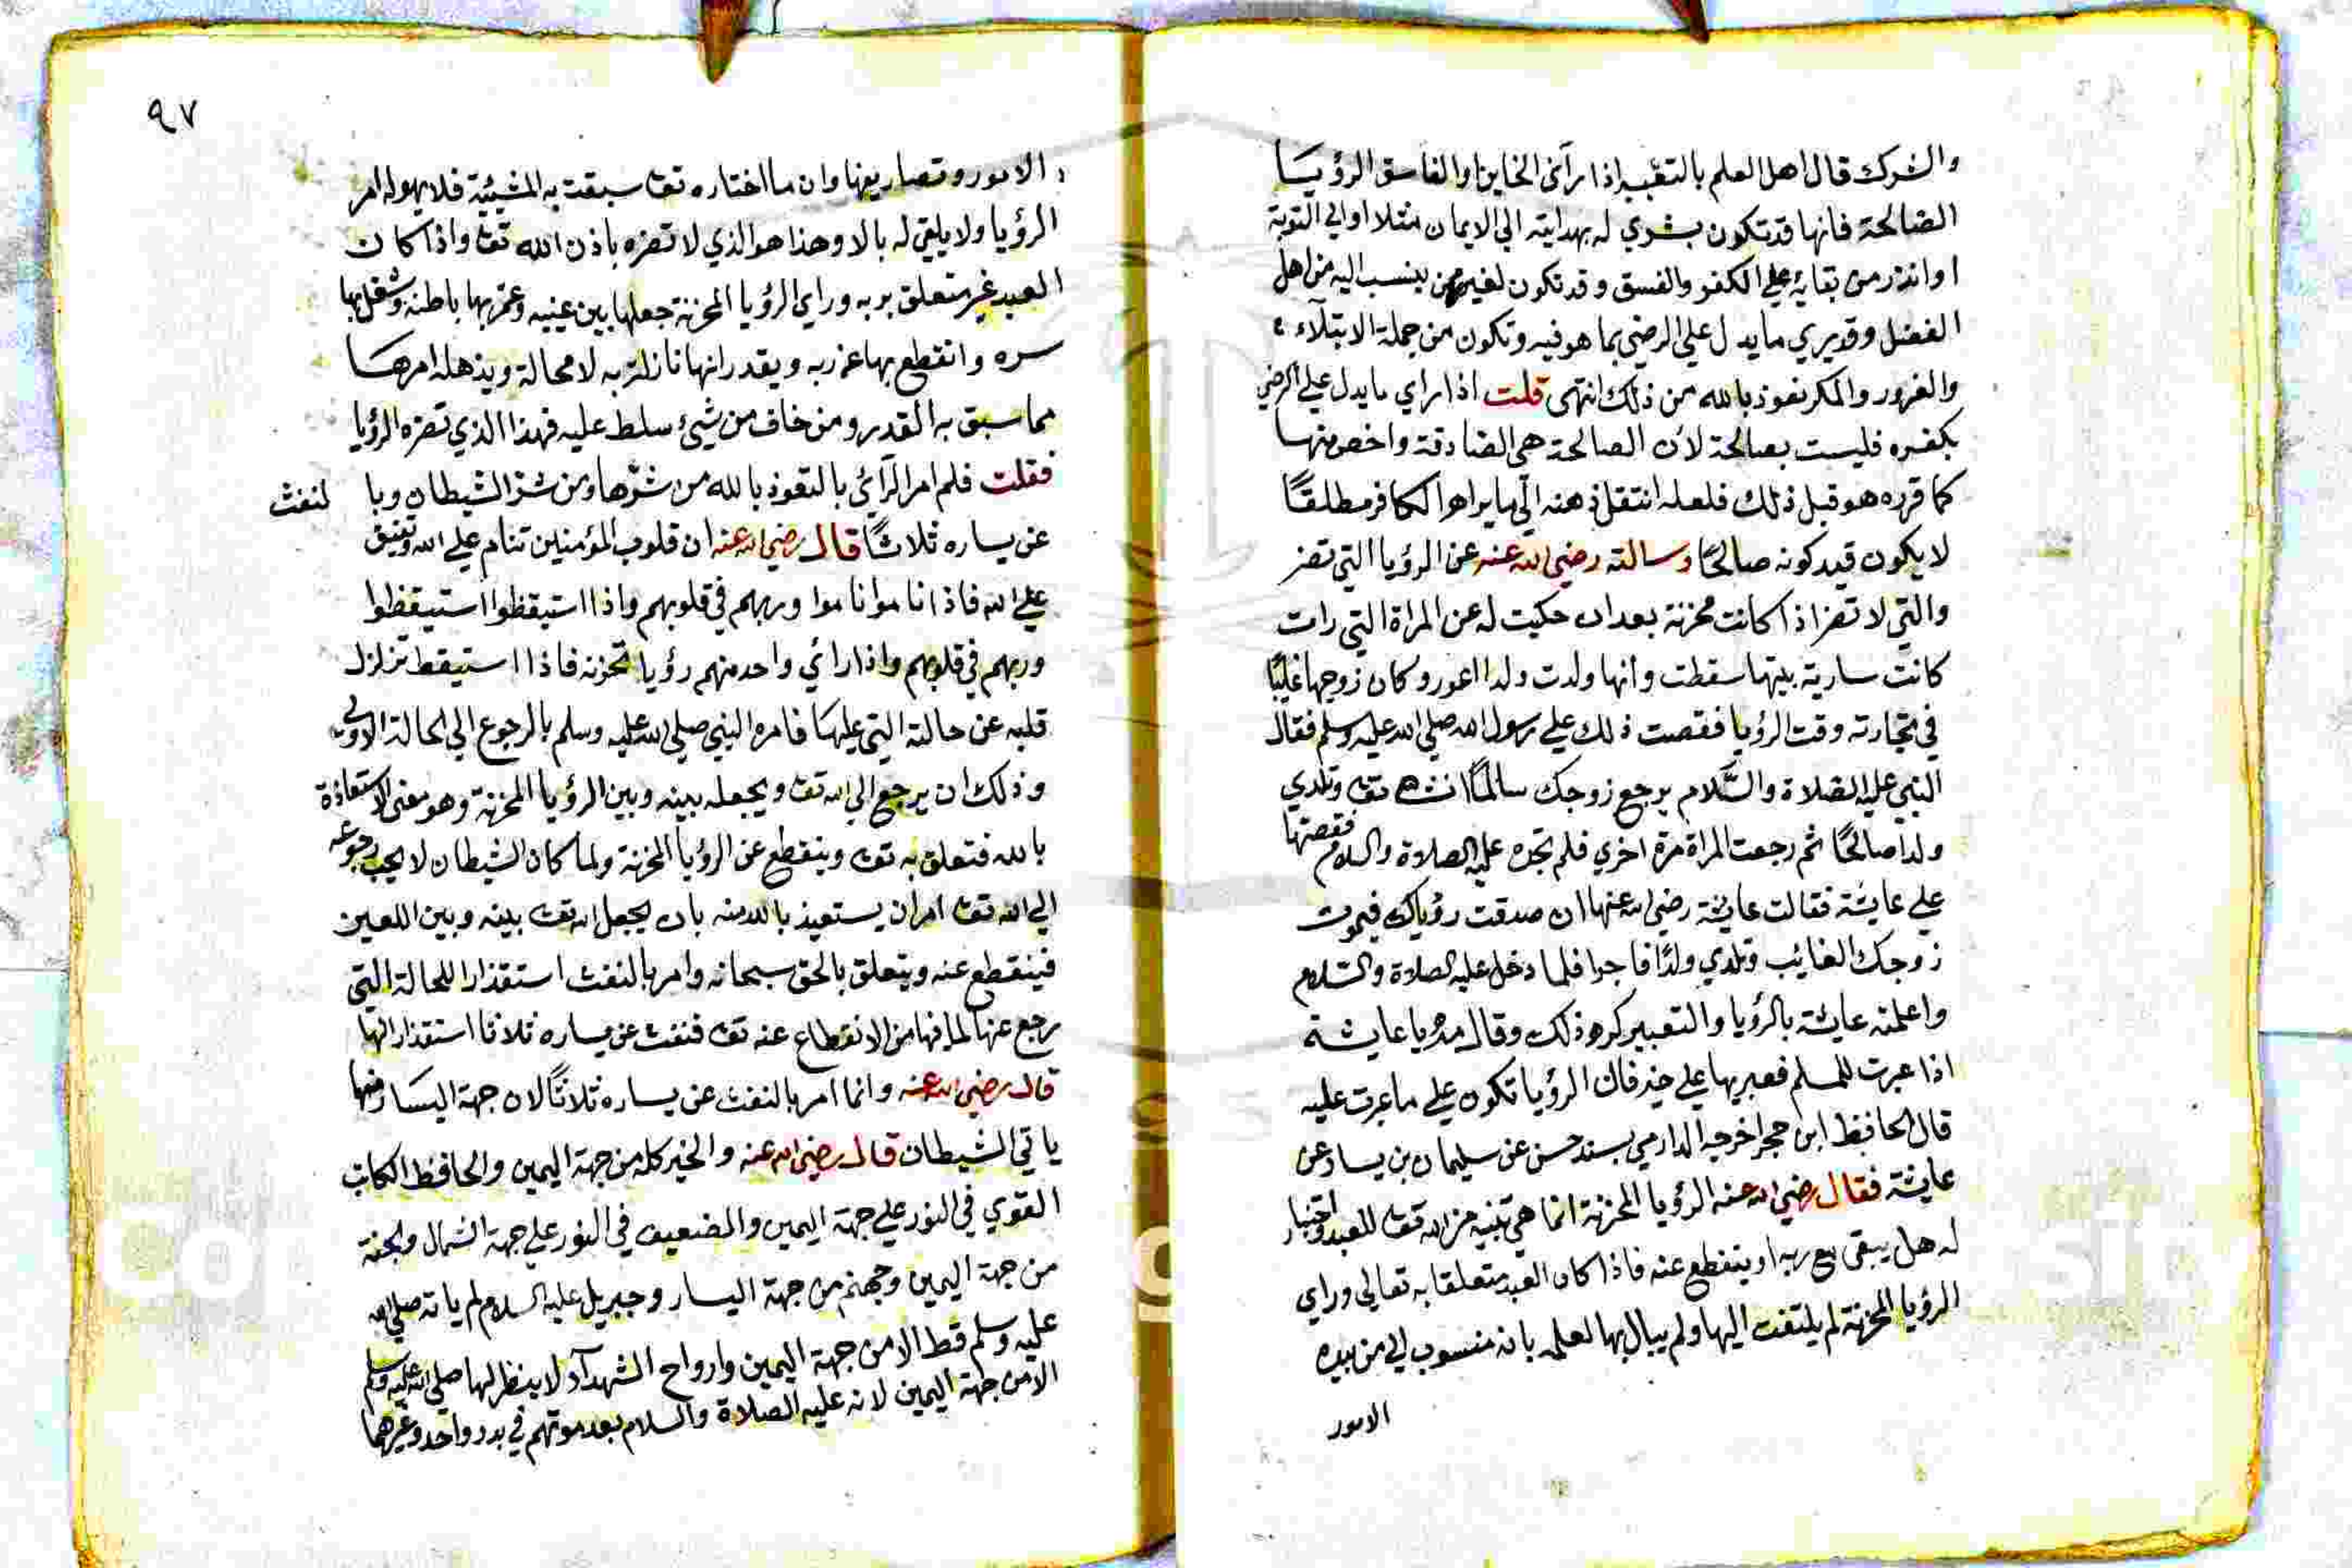 والشرك قال اهل العلم بالتعبير اذا رآى الخاين او الفاسق الرؤيا
الصالحة فانها قد تكون بشري له بهدايته الي الايمان مثلا او الي التوبة
او انذر من بقايه علي الكفر والفسق وقد تكون لغيره ممن ينسب اليه من اهل
الفضل وقد يري ما يدل علي الرضي بما هو فيه وتكون من جملة الابتلآء
والغرور والمكر نعوذ بالله من ذلك انتهى قلت اذا راي ما يدل علي الرضي
بكفره فليست بصالحة لان الصالحة هي الصادقة واخص منها
كما قرره هو قبل ذلك فلعله انتقل ذهنه الي ما يراه الكافر مطلقًا
لا بكون قيد كونه صالحًا وسالته رضي الله عنه عن الرؤيا التي تضر
والتي لا تضر اذا كانت محزنة بعد ان حكيت له عن المراة التي رات
كانت سارية بيتها سقطت وانها ولدت ولدا اعور وكان زوجها غايبًا
في تجارته وقت الرؤيا فقصت ذلك علي رسول الله صلي الله عليه وسلم فقال
النبي عليه الصلاة والسَّلام يرجع زوجك سالمًا ان شا الله تعا وتلدي
ولدا صالحًا ثم رجعت المراة مرة اخري فلم تجده عليه الصلاة والسلام فقصتها
علي عايشة فقالت عايشة رضي الله عنها ان صدقت رؤياك فيموت
زوجك الغايب وتلدي ولدًا فاجرا فلما دخل عليه الصلاة والسلام
واعلمته عايشة بالرؤيا والتعبير كره ذلك وقال مه يا عايشة
اذا عبرت للمسلم فعبريها علي خير فان الرؤيا تكون علي ما عبرت عليه
قال الحافظ ابن حجر اخرجه الدارمي بسند حسن عن سليمان بن يسار عن
عايشة فقال رضي الله عنه الرؤيا المحزنة انما هي تنبيه من الله تعا للعبد واختبار
له هل يبقى مع ربه او ينقطع عنه فاذا كان العبد متعلقا به تعالي وراي
الرؤيا المحزنة لم يلتفت اليها ولم يبال بها لعلمه بانه منسوب الي من بيده
الامور
٩٧
الامور وتصاريفها وان ما اختاره تعا سبقت به المشيئة فلا يهوله امر
الرؤيا ولا يلقي له بالا وهذا هو الذي لا تضره باذن الله تعا واذا كان
العبد غير متعلق بربه وراي الرؤيا المحزنة جعلها بين عينيه وعمر بها باطنه وشغل بها
سره وانقطع بها عن ربه ويقدر انها نازلة به لا محالة ويذهله امرها
مما سبق به القدر ومن خاف من شيئ سلط عليه فهذا الذي تضره الرؤيا
فقلت فلم امر الرآئي بالتعوذ بالله من شرّها ومن شر الشيطان وبا لنفث
عن يساره ثلاثًا قال رضي الله عنه ان قلوب المؤمنين تنام علي الله وتفيق
علي الله فاذا ناموا ناموا وربهم في قلوبهم واذا استيقظوا استيقظوا
وربهم في قلوبهم واذا رائي واحد منهم رؤيا تحزنه فاذا استيقظ تزلزل
قلبه عن حالته التي عليها فامره النبي صلي الله عليه وسلم بالرجوع الي الحالة الاولي
وذلك ان يرجع الي الله تعا ويجعله بينه وبين الرؤيا المحزنة وهو معني الاستعاذة
بالله فتعلق به تعا وينقطع عن الرؤيا المحزنة ولما كان الشيطان لا يحب رجوعه
الي الله تعا امر ان يستعيذ بالله منه بان يجعل الله تعا بينه وبين اللعين
فينقطع عنه ويتعلق بالحق سبحانه وامر بالنفث استقذارا للحالة التي
رجع عنها لما فيها من الانقطاع عنه تعا فنفث عن يساره ثلاثا استقذارا لها
قال رضي الله عنه وانما امر بالنفث عن يساره ثلاثًا لان جهة اليسار منها
ياتي الشيطان قال رضي الله عنه والخير كله من جهة اليمين والحافظ الكاتب
القوي في النور علي جهة اليمين والضعيف في النور علي جهة الشمال والجنة
من جهة اليمين وجهنم من جهة اليسار وجبريل عليه السلام لم ياته صلي الله
عليه وسلم قط الا من جهة اليمين وارواح الشهدآء لا ينظر لها صلي الله عليه وسلم
الا من جهة اليمين لانه عليه الصلاة والسلام بعد موتهم في بدر واحد وغيرهما